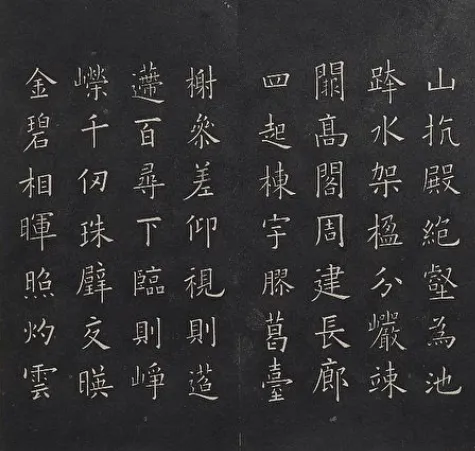 山抗殿絶壑為池
跨水架楹分巖竦
闕高閣周建長廊
四起棟宇膠葛臺
榭叅差仰視則迢
遰百尋下臨則崢
嶸千仞珠璧交暎
金碧相暉照灼雲